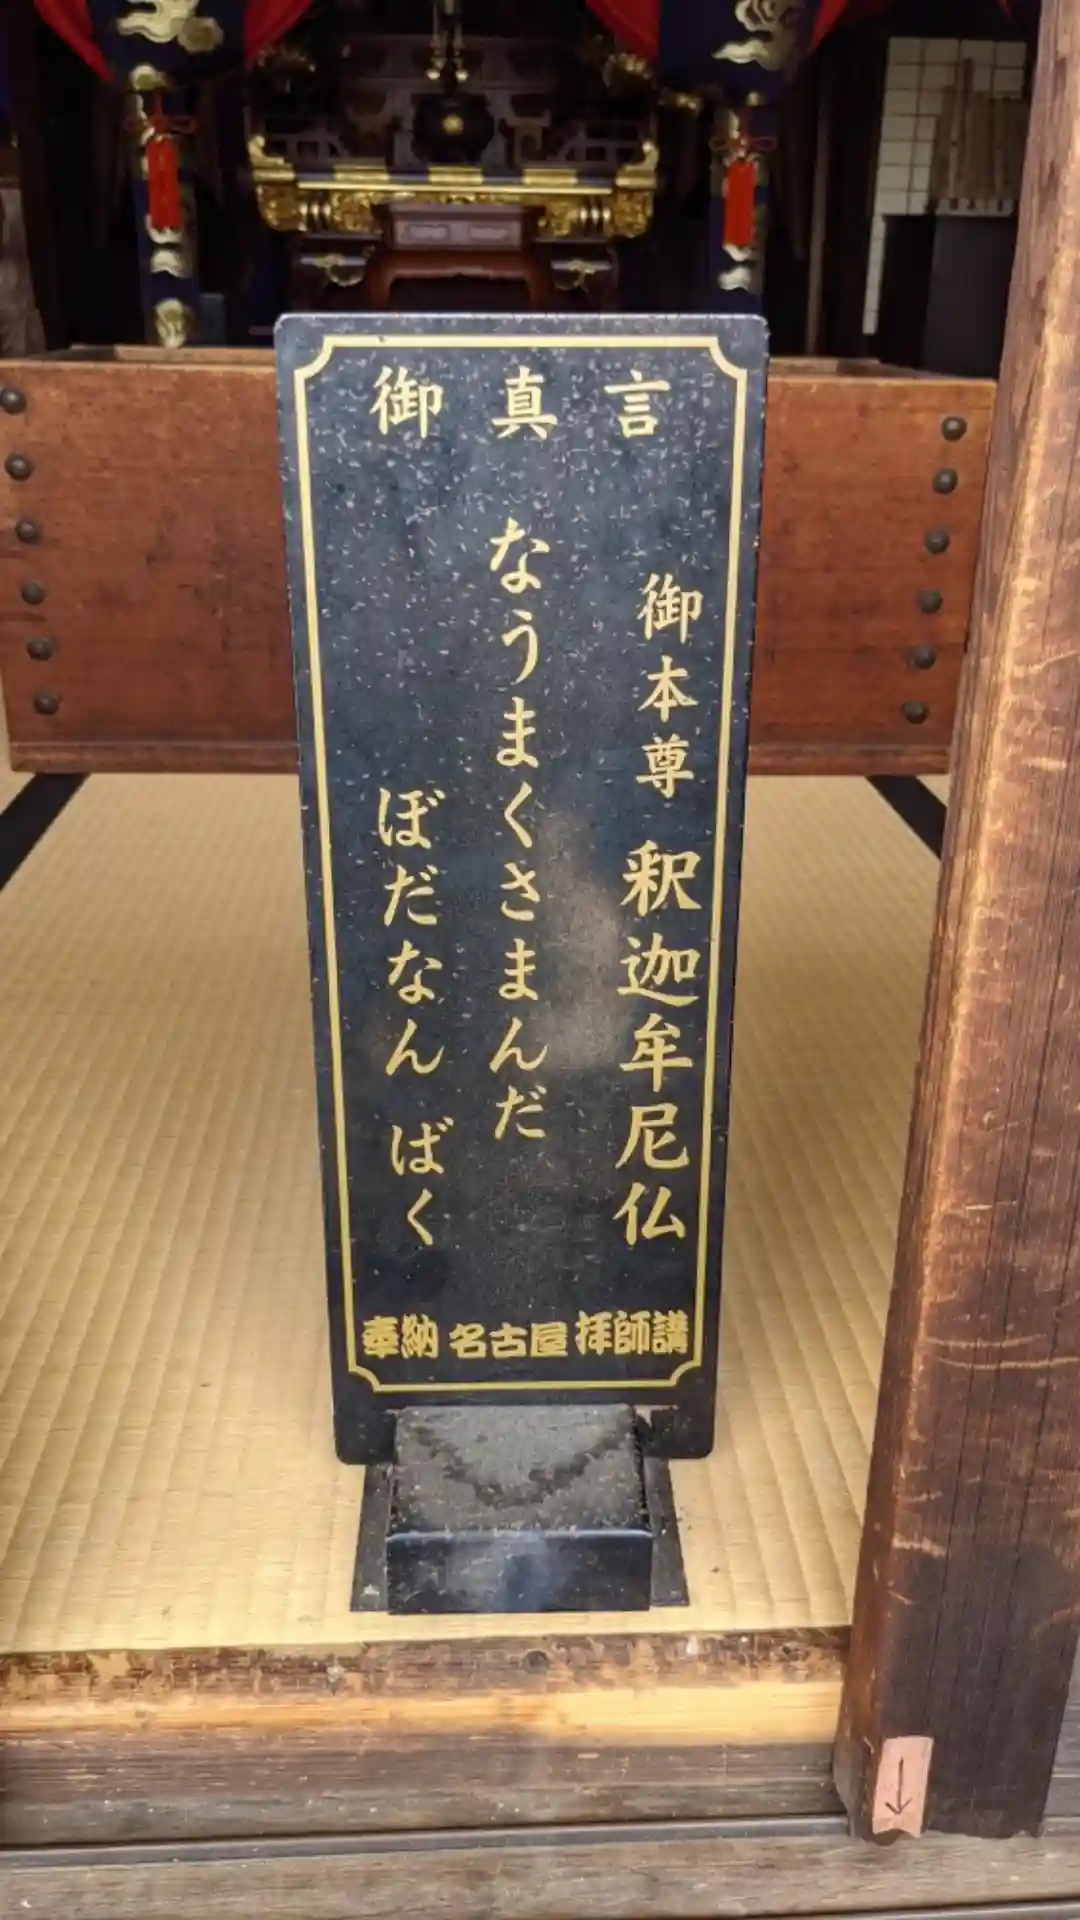 御真言
御本尊 釈迦牟尼仏
なうまくさまんだ
ぼだなん ばく
奉納 名古屋 拝師講